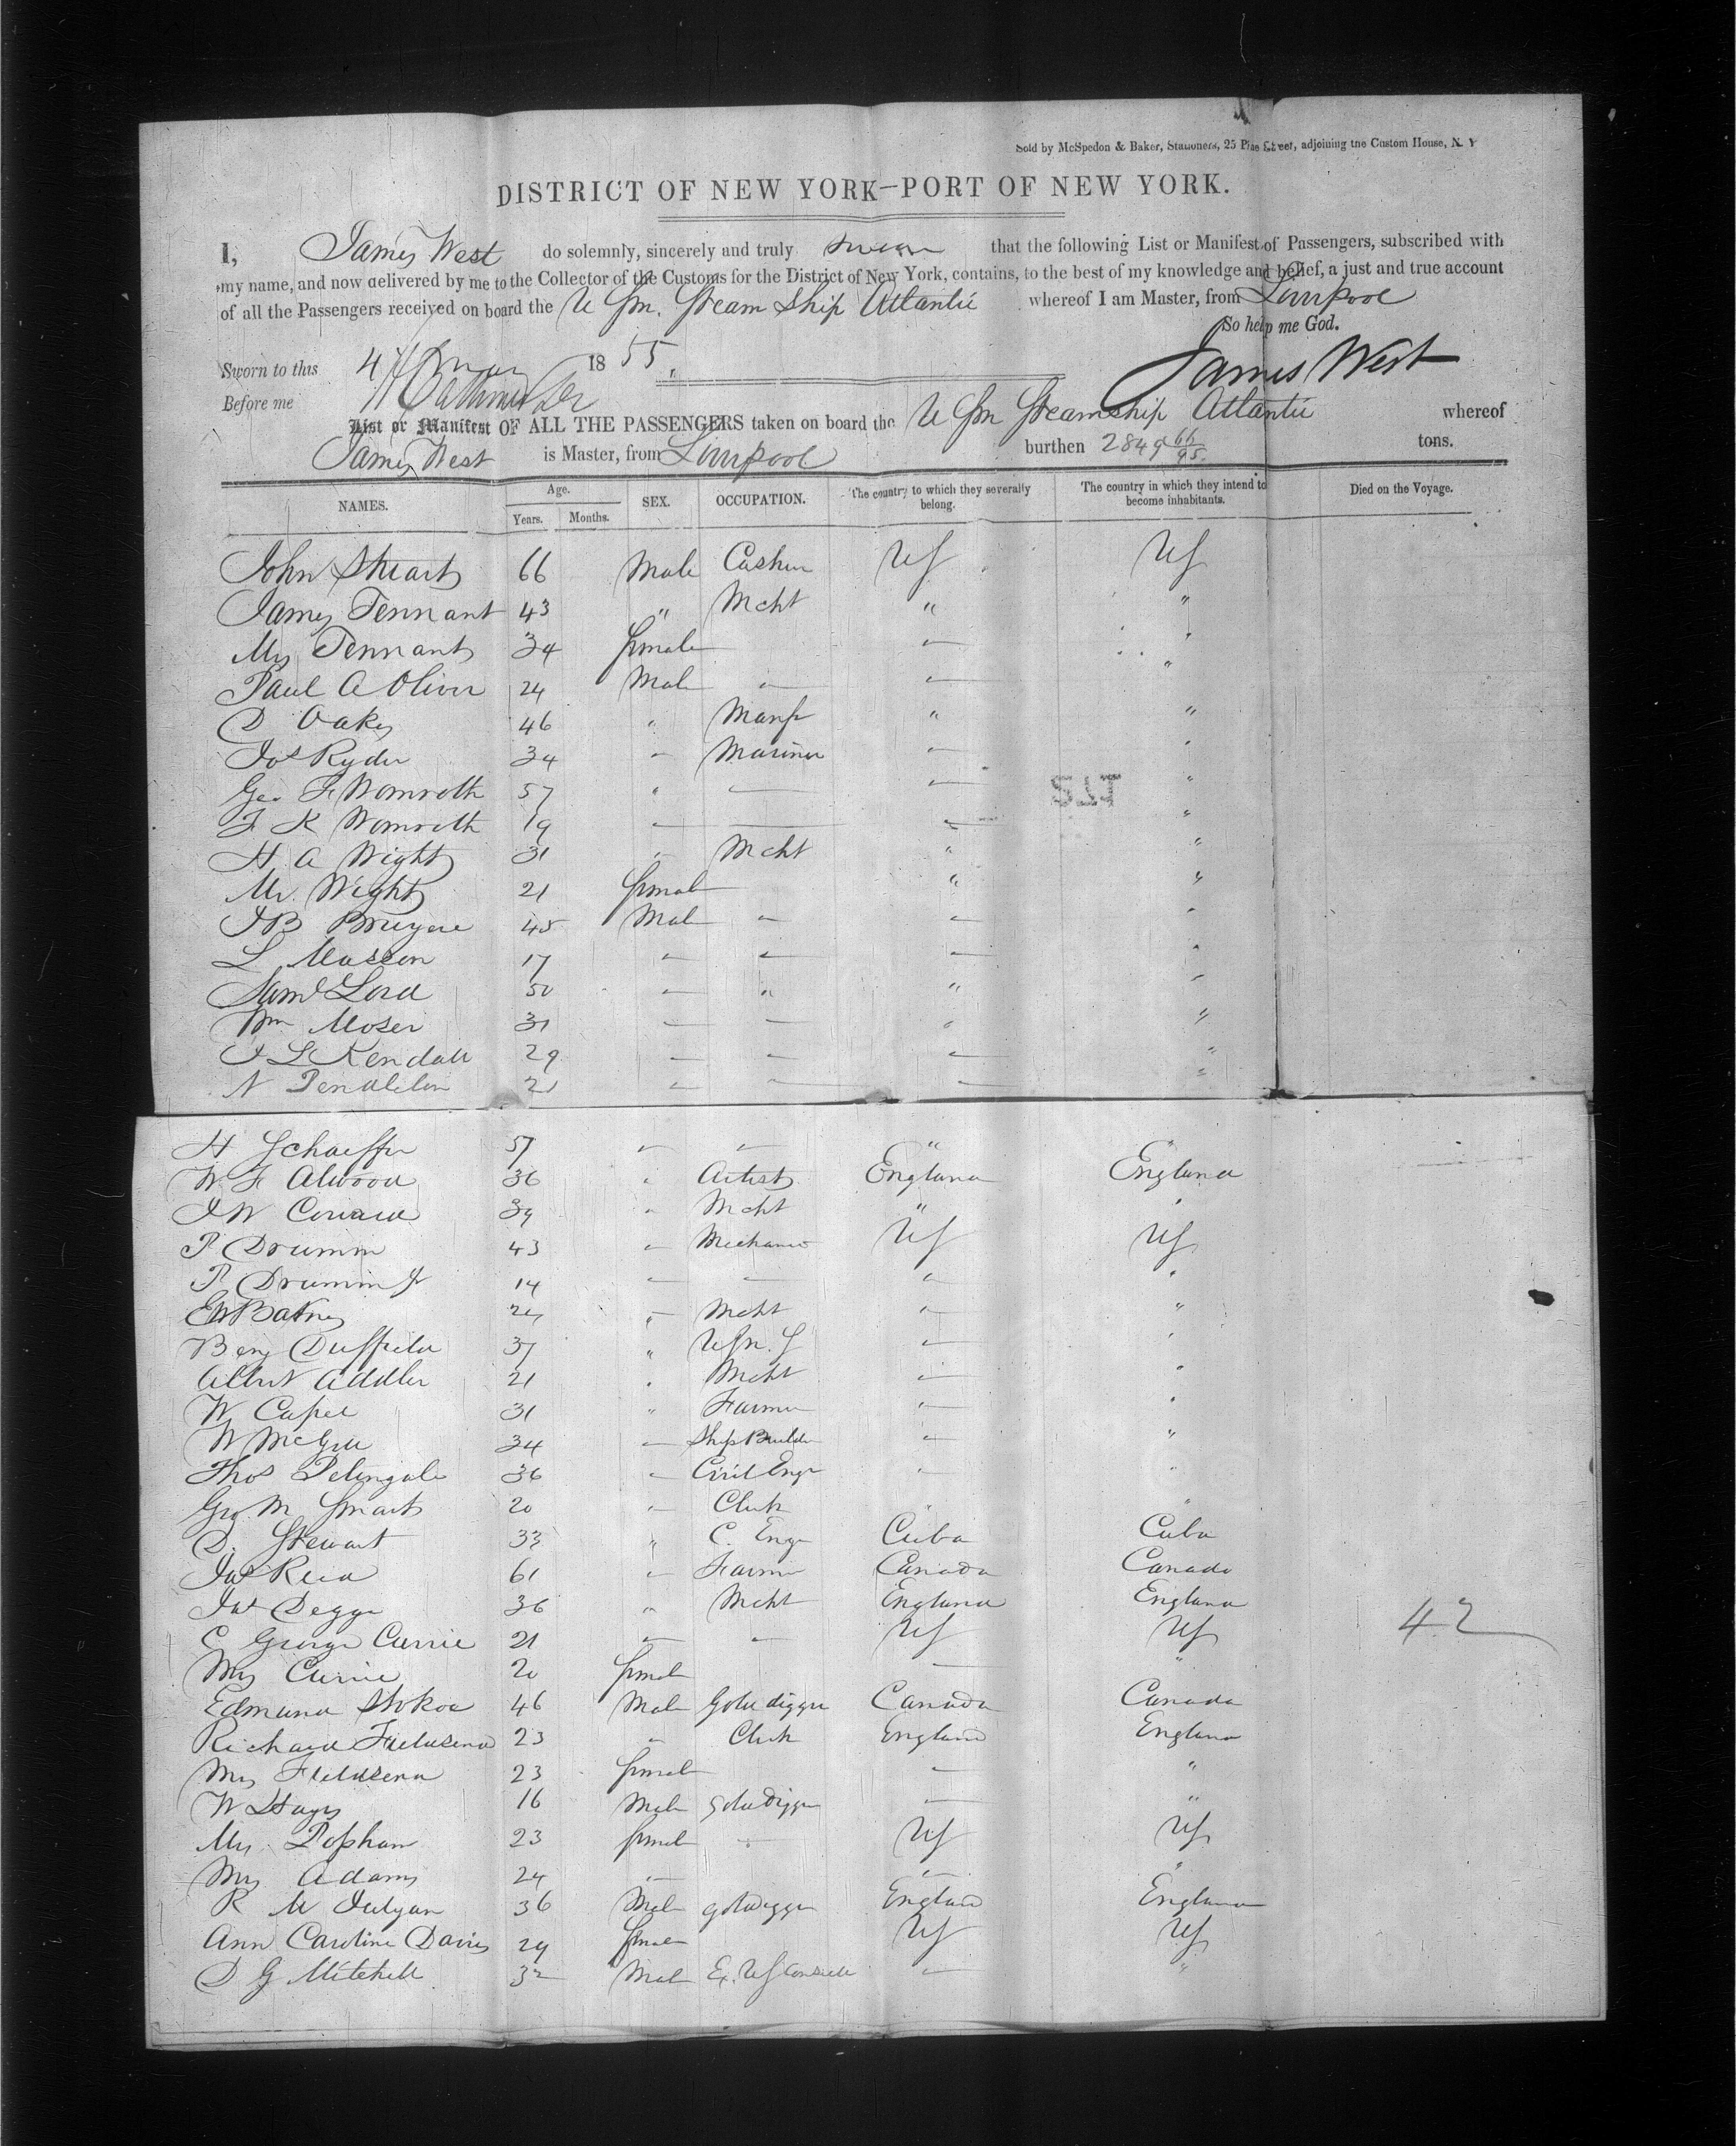 Sold by McSpedon & Baker, Stationers, 25 Pine Street, adjoining the Custom House, N. Y
DISTRICT OF NEW YORK—PORT OF NEW YORK.
I, James West do solemnly, sincerely and truly swear that the following List or Manifest of Passengers, subscribed with
my name, and now delivered by me to the Collector of the Customs for the District of New York, contains, to the best of my knowledge and belief, a just and true account
of all the Passengers received on board the U S M. Steam Ship Atlantic whereof I am Master, from Liverpool
So help me God.
Sworn to this 4 1855, James West
Before me
List or Manifest OF ALL THE PASSENGERS taken on board the U S M Steamship Atlantic whereof
James West is Master, from Liverpool burthen 2849 66/95 tons.
NAMES. Age. Years. Months. SEX. OCCUPATION. The country to which they severally belong. The country in which they intend to become inhabitants. Died on the Voyage.
John Stuart 66 Male Cashier US US
James Tennant 43 " Mcht " "
Mrs Tennant 34 female " "
Paul A Oliver 24 Male " " "
D Oakes 46 " Manfr " "
Jos Ryder 34 " Mariner " "
Geo F Womrath 57 " " " "
F K Womrath 19 " " " "
H. A Wight 31 " Mcht " "
Mrs. Wight 21 female " "
J B Bruyere 45 Male " " "
L Masson 17 " " " "
Saml Lord 50 " " " "
Wm Moser 31 " " " "
J L Kendall 29 " " " "
N Pendleton 21 " " " "
H Schaeffer 57 " " " "
W. F Atwood 36 " Artist England England
J W Coward 39 " Mcht " "
P Drumm 43 " Mechanic US US
P Drumm Jr 14 " " " "
" Mcht " "
Benj Duffield 37 " USM. S " "
Albert Addler 21 " Mcht " "
W Capel 31 " Farmer " "
W McGill 34 " Ship Builder " "
Thos Petingale 36 " Civil Engr " "
Geo. M Smart 20 " Clerk " "
D. Stewart 33 " C. Engr Cuba Cuba
Jas Reid 61 " Farmer Canada Canada
36 " Mcht England England
C George Currie 21 " " US US
Mrs Currie 20 female " "
Edmund Stokoe 46 Male Gold digger Canada Canada
Richard Fieldsend 23 " Clerk England England
Mrs Fieldsend 23 female " "
W Hays 16 Male Gold Digger " "
Mrs. Popham 23 female " US US
Mrs Adams 24 " " "
R M Julyan 36 Male golddigger England England
Ann Caroline Davis 29 female US US
D G Mitchell 32 Male Ex. US Consul " "
42